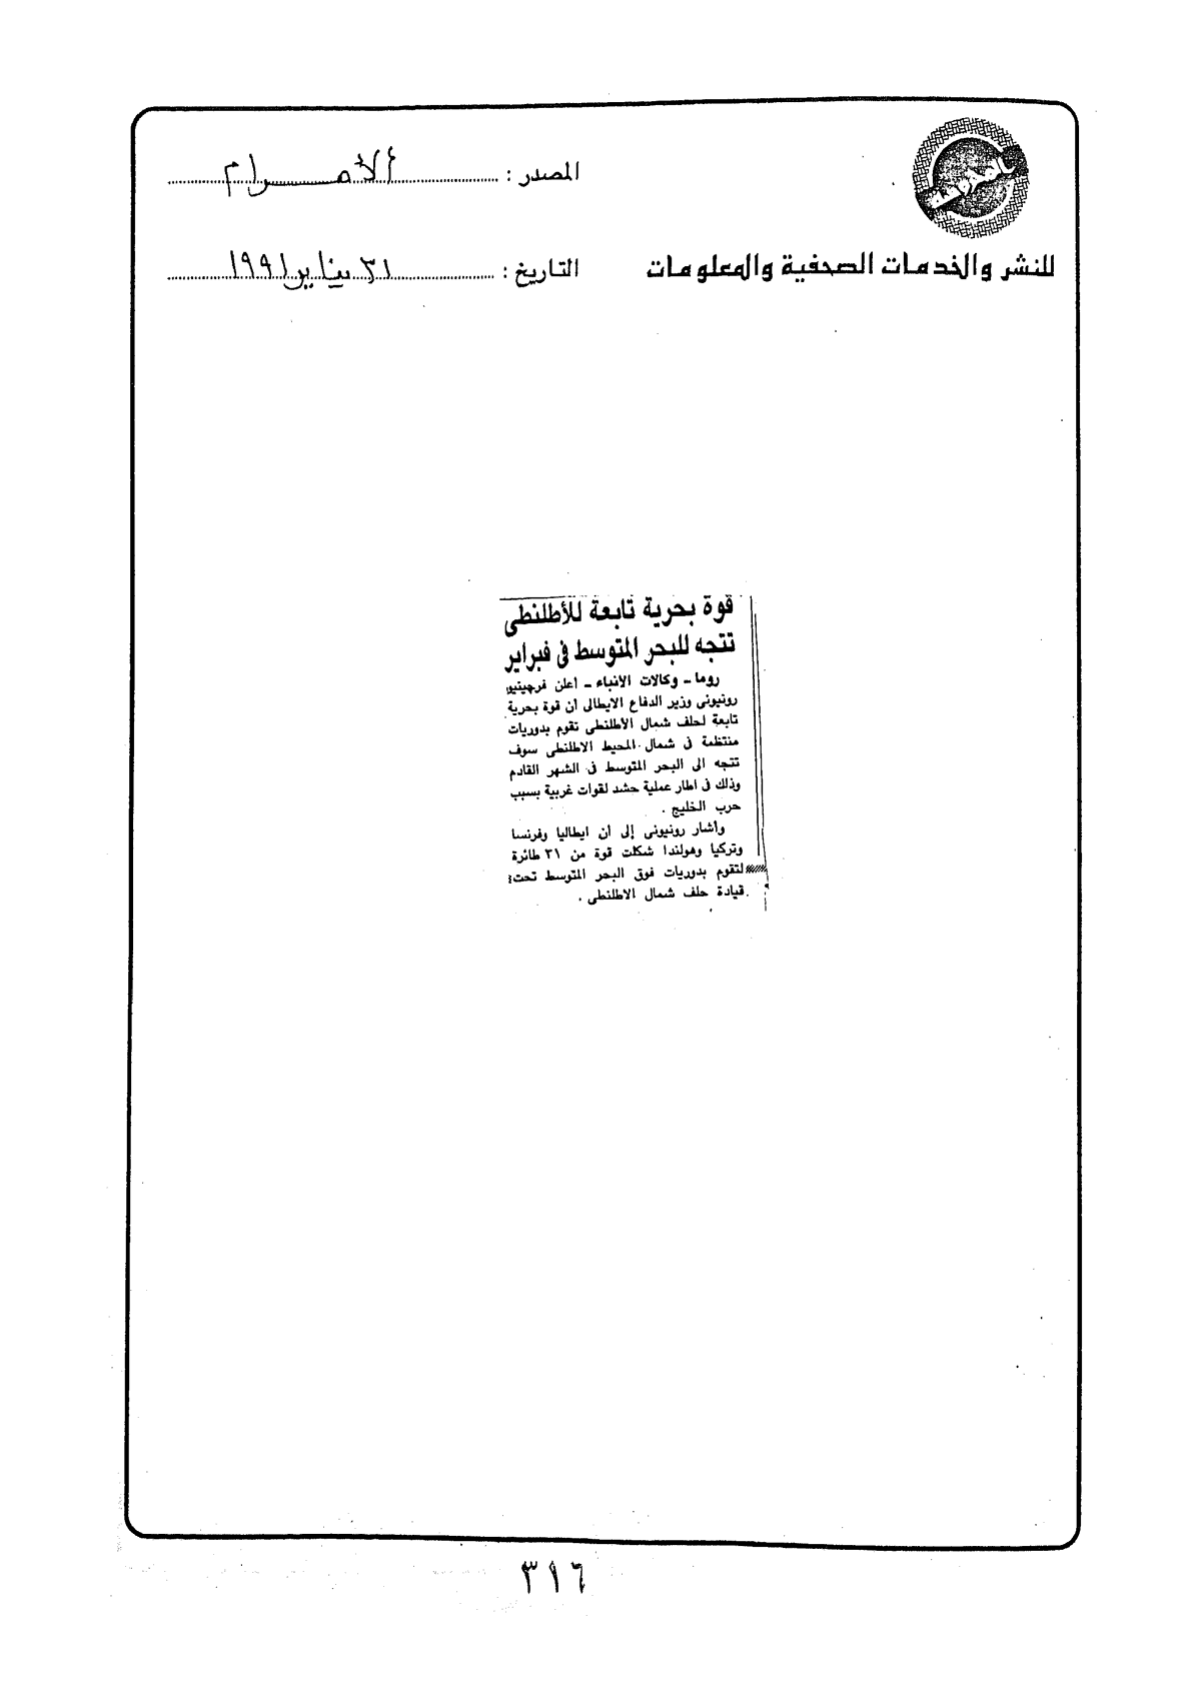 المصدر : الأهرام
للنشر والخدمات الصحفية والمعلومات
التاريخ : ٣١ يناير ١٩٩١
قوة بحرية تابعة للأطلنطى
تتجه للبحر المتوسط فى فبراير
روما ـ وكالات الانباء ـ اعلن فرجينيو
رونيونى وزير الدفاع الايطالى ان قوة بحرية
تابعة لحلف شمال الأطلنطى تقوم بدوريات
منتظمة فى شمال المحيط الاطلنطى سوف
تتجه الى البحر المتوسط فى الشهر القادم
وذلك فى اطار عملية حشد لقوات غربية بسبب
حرب الخليج .
وأشار رونيونى إلى أن ايطاليا وفرنسا
وتركيا وهولندا شكلت قوة من ٣١ طائرة
لتقوم بدوريات فوق البحر المتوسط تحت
قيادة حلف شمال الاطلنطى .
٣١٦